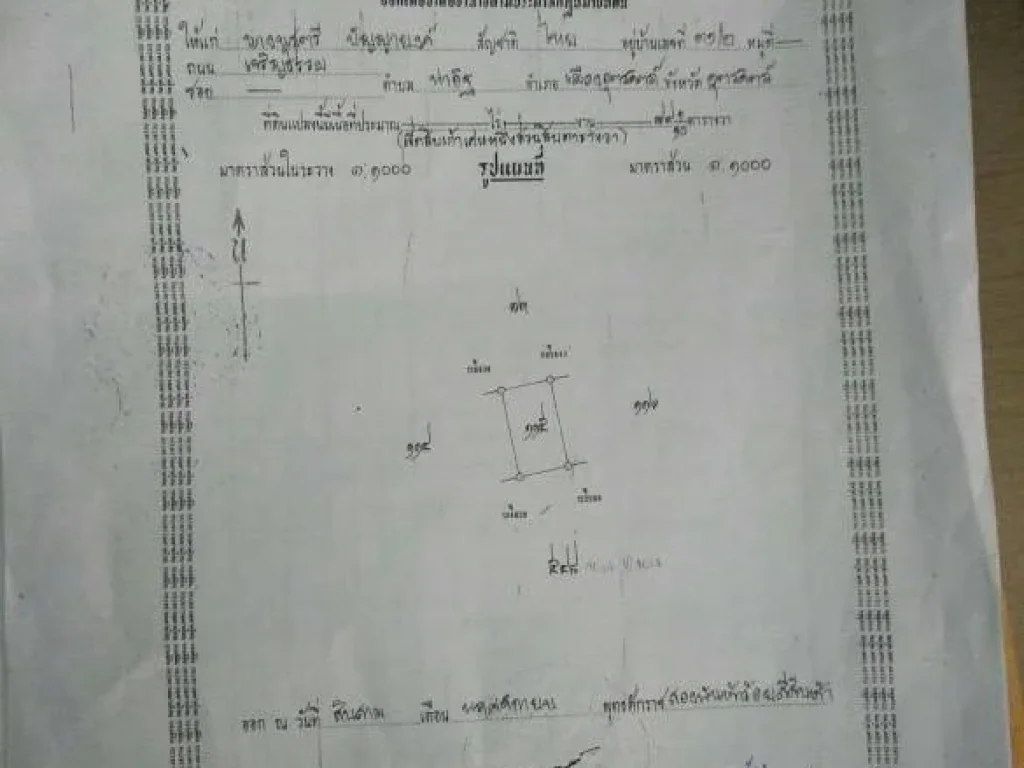 ให้แก่ นาง ปัญญายงค์ สัญชาติ ไทย อยู่บ้านเลขที่ ๓๖/๒ หมู่ที่ —
ถนน เจริญธรรม
ซอย — ตำบล ท่าอิฐ อำเภอ เมืองอุตรดิตถ์ จังหวัด อุตรดิตถ์
ที่ดินแปลงนี้มีเนื้อที่ประมาณ — ไร่ — งาน ๔๙ ๑/๑๐ ตารางวา
(สี่สิบเก้าเศษหนึ่งส่วนสิบตารางวา)
มาตราส่วนในระวาง ๑:๑๐๐๐ รูปแผนที่ มาตราส่วน ๑:๑๐๐๐
น
๑๑๕
๑๑๔
ออก ณ วันที่ สิบสาม เดือน พฤศจิกายน พุทธศักราช สองพันห้าร้อยสี่สิบห้า